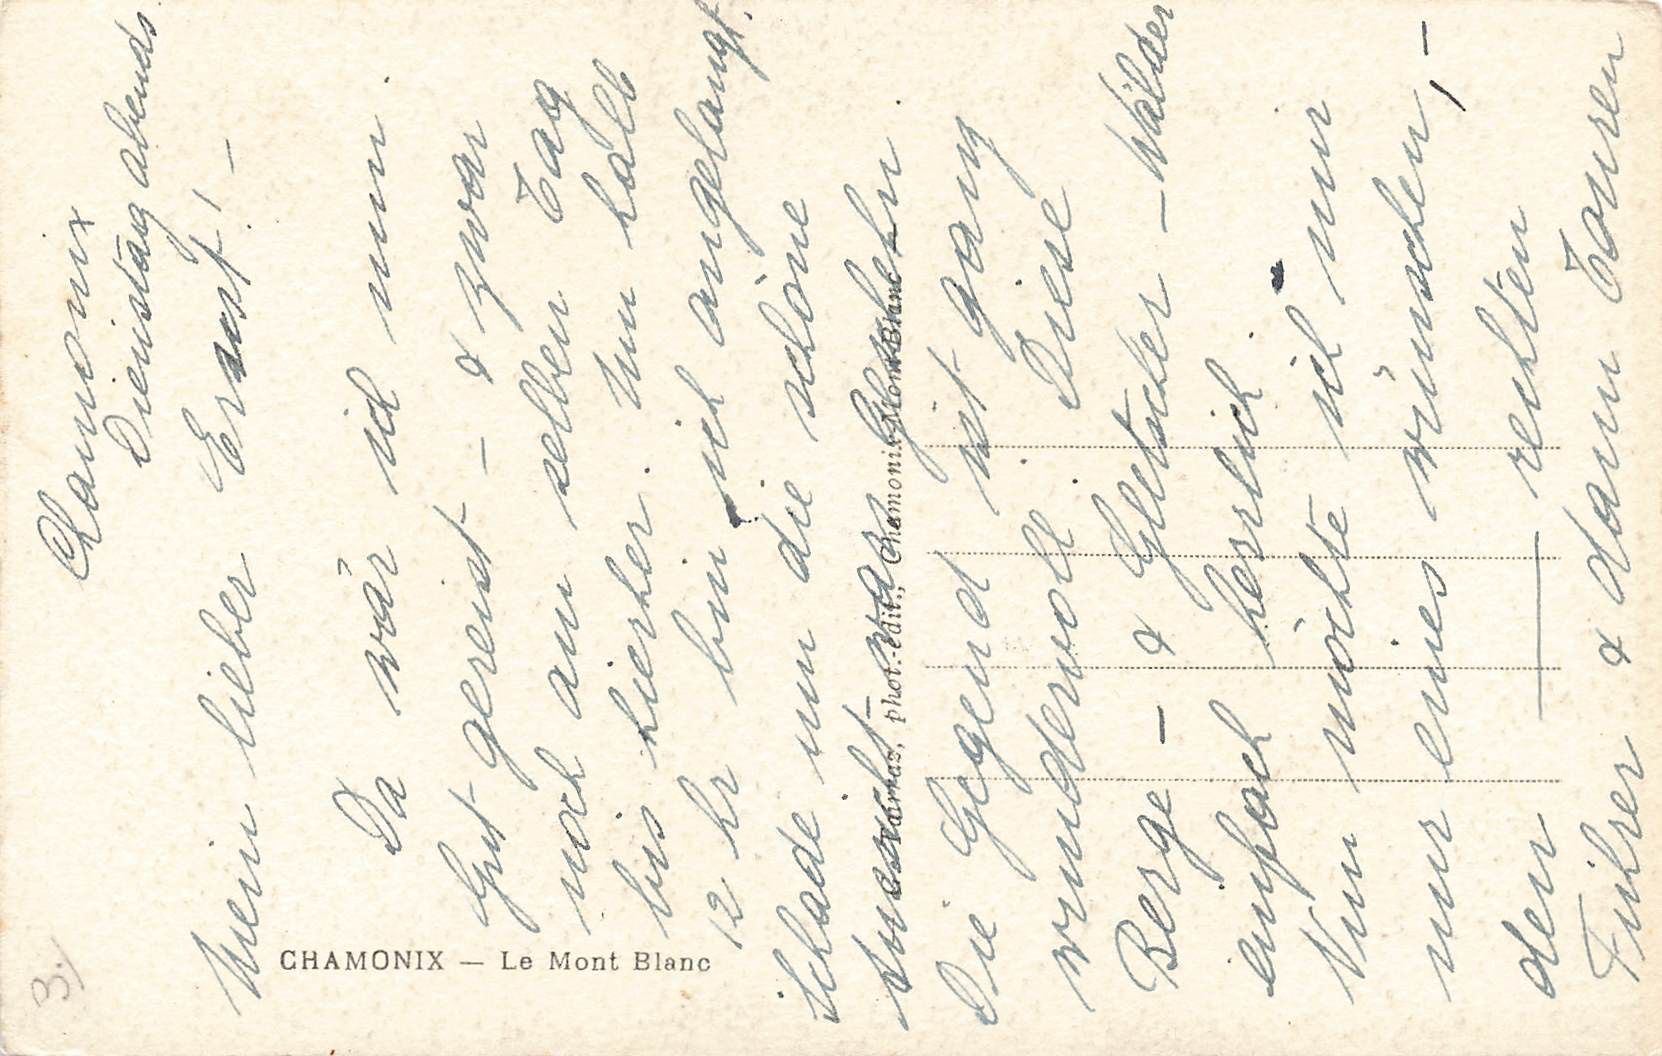 Chamonix
Dienstag abends
Mein lieber Ernst! –
Da wär ich nun
Gut gereist – & zwar
noch am selben Tag
bis hierher. Um halb
12 hr bin ich angelangt.
Schade um die schöne
war
Die Gegend ist ganz
wundervoll Diese
Berge – & Gletscher – Wälder
einfach herrlich
Nun möchte ich nur
nur eines wünschen, –
den rechten
Führer & dann Touren
CHAMONIX — Le Mont Blanc
phot.-édit., Chamonix-Mont-Blanc
3.)